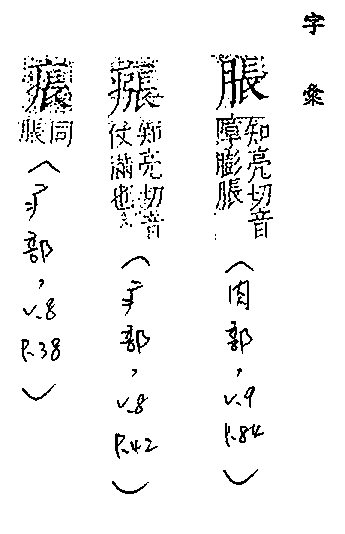 字彙
脹
知亮切音
障膨脹
(肉部,v.9
P.84)
瘬
知亮切音
仗滿也
(疒部,v.8
P.42)
痮
同
脹
(疒部,v.8
P.38)